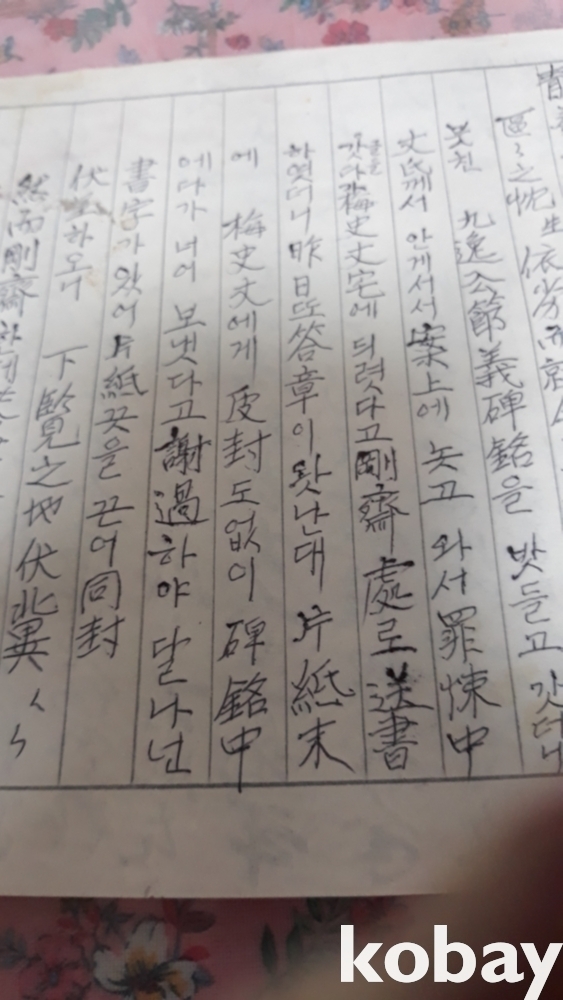 區々之忱生依劣而
못친 九逸公節義碑銘을 밧들고 갓더니
丈氏께서 안게서서 案上에 놋고 와서 罪悚中
갓다가 梅史丈宅에 듸렷다고 剛齋處로 送書
하엿더니 昨日또答章이 왓난대 片紙末
에 梅史丈에게 皮封도없이 碑銘中
에다가 너어 보냇다고 謝過하야 달나난
書字가 있어 片紙끗을 끈어 同封
伏呈하오니 下覽之地伏冀々
然而剛齋
kobay